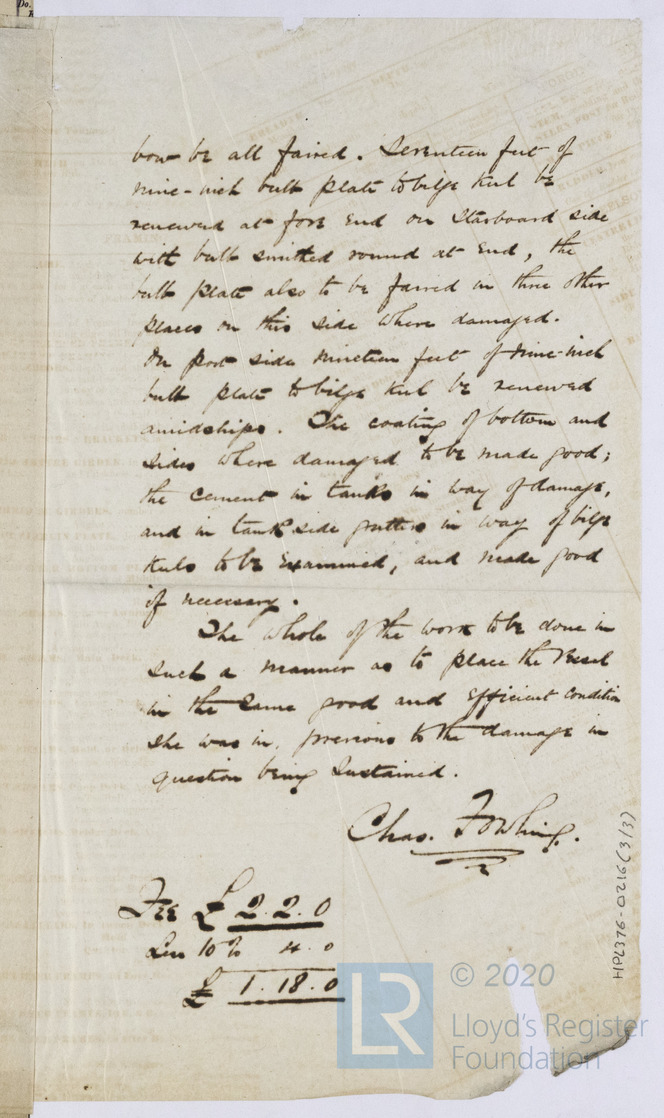 bow be all faired. Seventeen feet of
nine-inch bulb plate to bilge keel be
renewed at fore end on Starboard side
with bulb smithed round at end, the
bulb plate also to be faired in three other
places on this side where damaged.
On port side nineteen feet of nine-inch
bulb plate to bilge keel be renewed
amidships. The coating of bottom and
sides where damaged to be made good;
the cement in tanks in way of damage,
and in tank side gutters in way of bilge
keels to be examined, and made good
if necessary.
The whole of the work to be done in
such a manner as to place the Vessel
in the same good and efficient condition
she was in, previous to the damage in
question being sustained.
Chas. Fowling.
Fee £ 2.2.0
Less 10% 4.0
£ 1.18.0
HPL376-0216(3/3)
LR © 2020
Lloyd's Register
Foundation